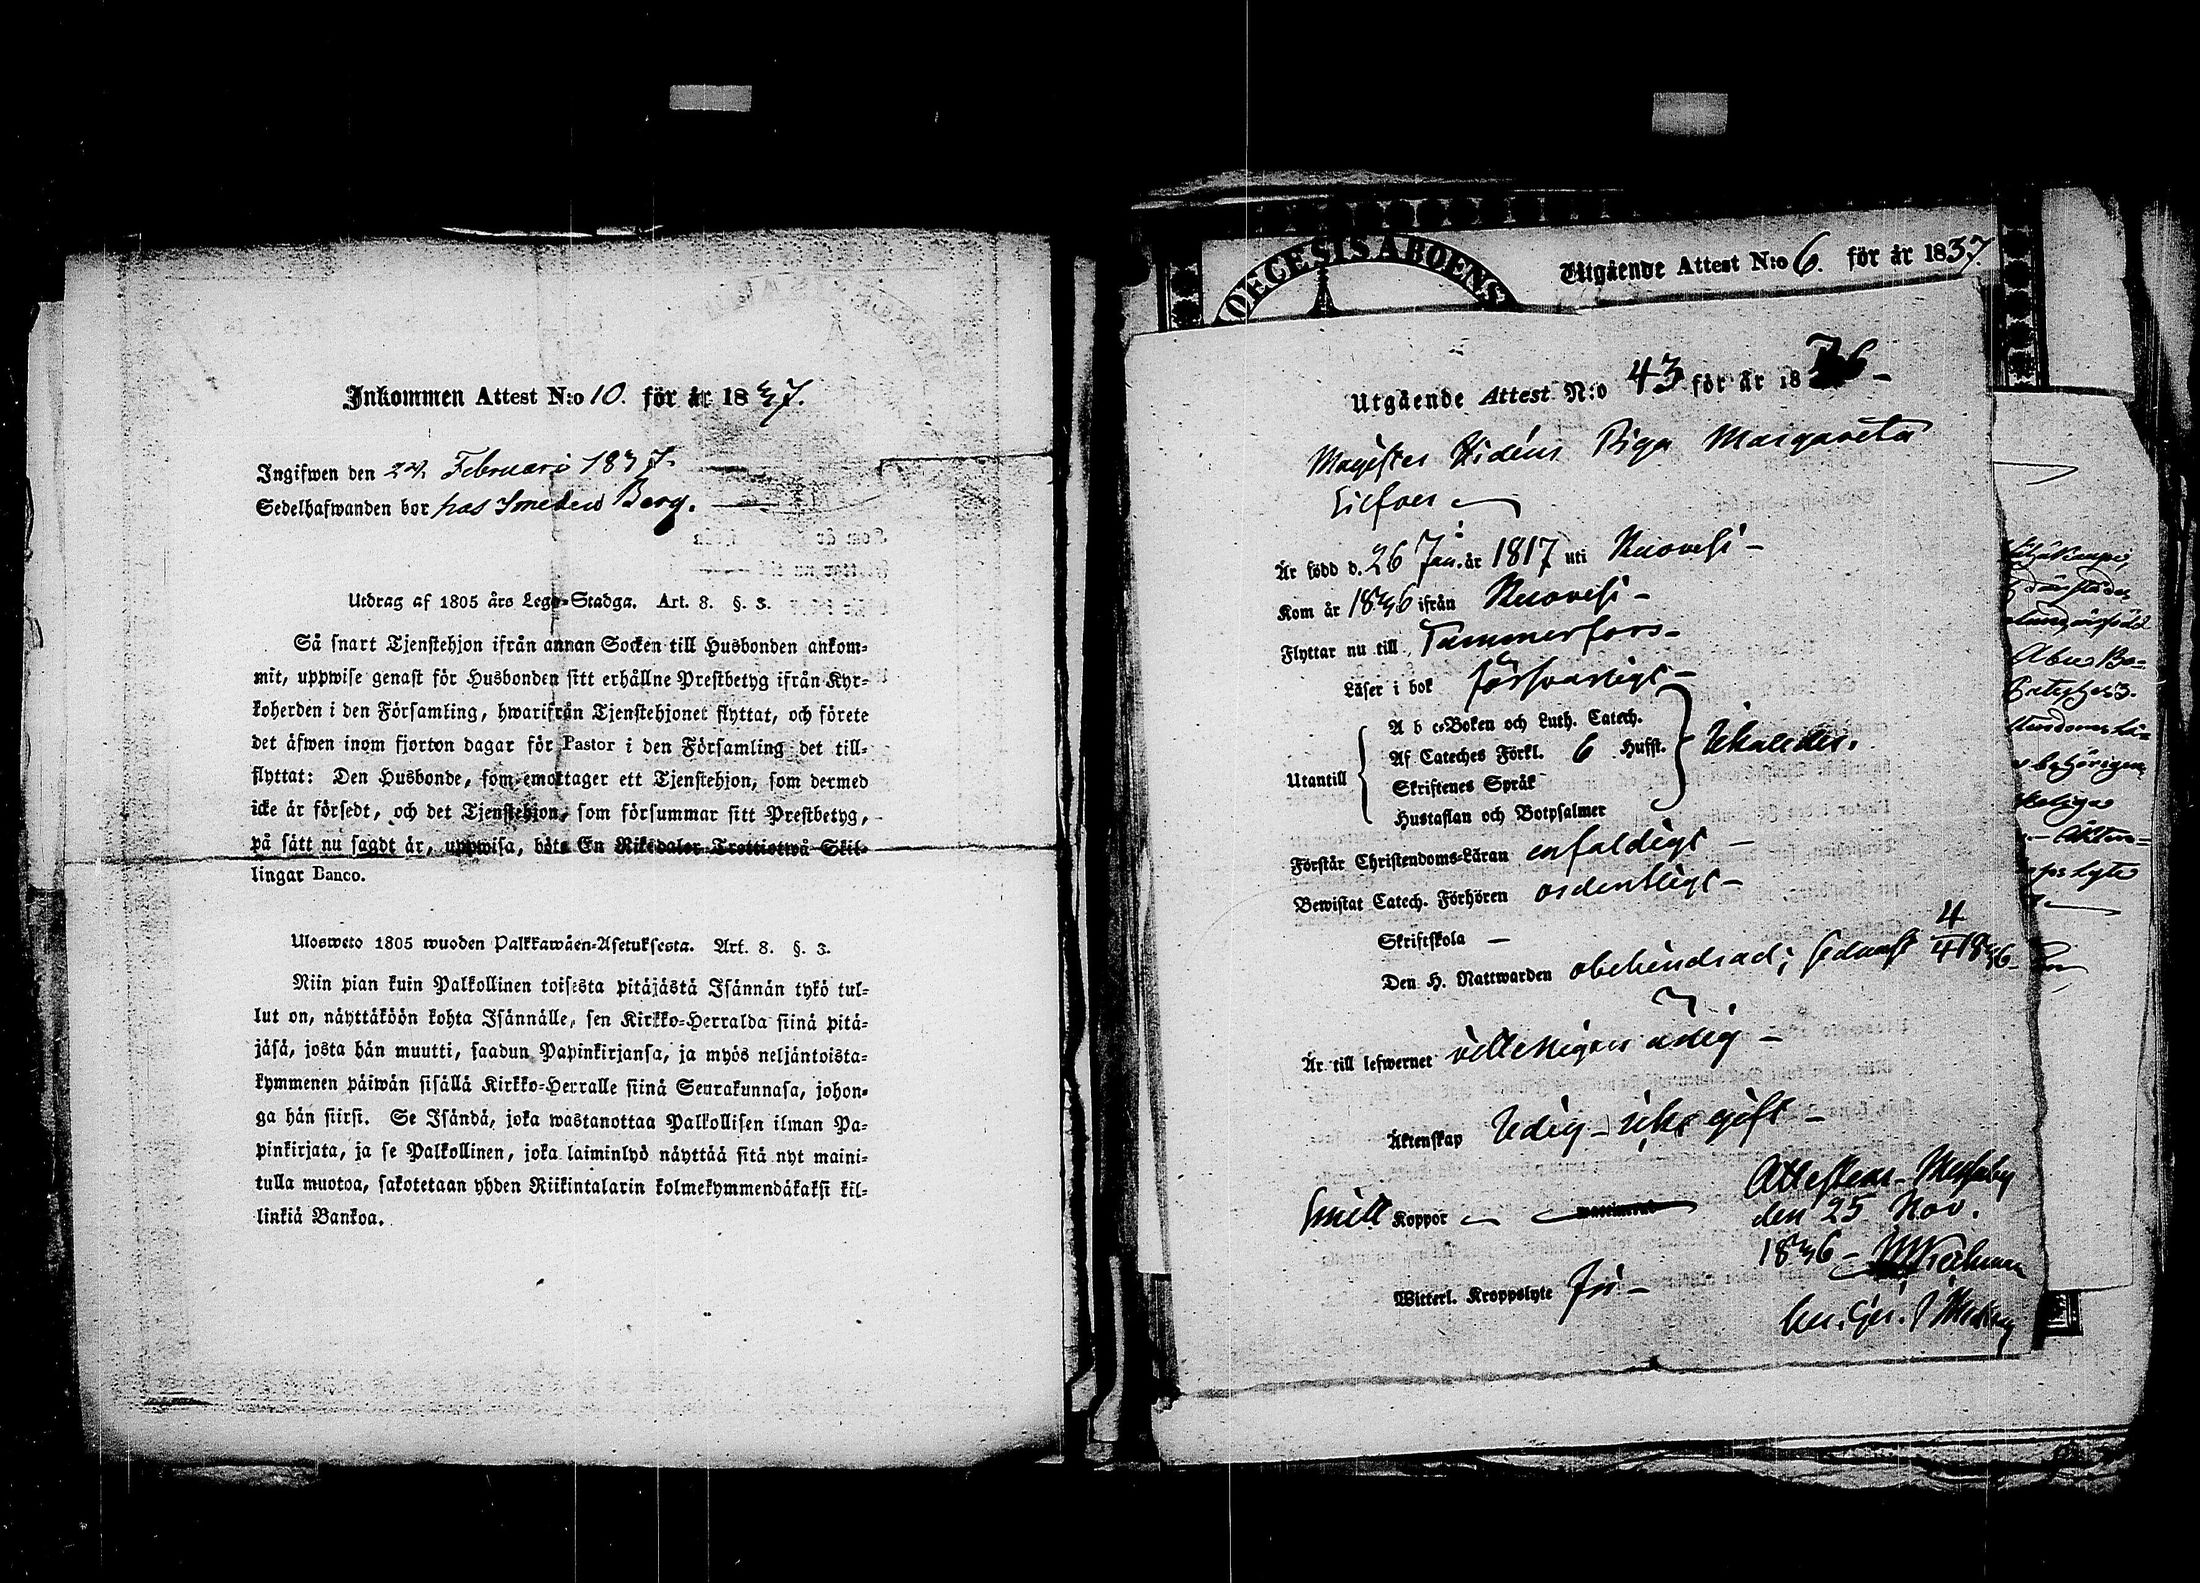 Inkommen Attest N:o 10. för år 1837.
Ingifwen den 24 Februari 1837.
Sedelhafwanden bor hos Smeden Berg.
Utdrag af 1805 års Lego-Stadga. Art. 8. §. 3.
Så snart Tjenstehjon ifrån annan Socken till Husbonden ankom-
mit, uppwise genast för Husbonden sitt erhållne Prestbetyg ifrån Kyr-
koherden i den Församling, hwarifrån Tjenstehjonet flyttat, och förete
det äfwen inom fjorton dagar för Pastor i den Församling det till-
flyttat: Den Husbonde, som emottager ett Tjenstehjon, som dermed
icke är försedt, och det Tjenstehjon, som försummar sitt Prestbetyg,
på sätt nu sagdt är, uppwisa, böte En Riksdaler Trettiotwå Skil-
lingar Banco.
Ulosweto 1805 wuoden Palkkawäen-Asetuksesta. Art. 8. §. 3.
Niin pian kuin Palkollinen toisesta pitäjästä Isännän tykö tul-
lut on, näyttäköön kohta Isännälle, sen Kirkko-Herralda siinä pitä-
jäsä, josta hän muutti, saadun Papinkirjansa, ja myös neljäntoista-
kymmenen päiwän sisällä Kirkko-Herralle siinä Seurakunnasa, johon-
ga hän siirsi. Se Isändä, joka wastanottaa Palkollisen ilman Pa-
pinkirjata, ja se Palkollinen, joka laiminlyö näyttää sitä nyt maini-
tulla muotoa, sakotetaan yhden Riikintalarin kolmekymmendäkaksi kil-
linkiä Bankoa.
OECESIS ABOENS
Utgående Attest N:o 6. för år 1837
Utgående Attest N:o 43 för år 1836 -
Magister Hidéns Piga Margareta
Är född d. 26 Jan. år 1817 uti Ruovesi -
Kom år 1836 ifrån Ruovesi -
Flyttar nu till Tammerfors -
Läser i bok försvarligt -
Utantill
A b c-Boken och Luth. Catech.
Af Cateches Förkl. 6 Hufst.
Skriftenes Språk
Hustaflan och Botpsalmer
Förstår Christendoms-Läran enfaldigt -
Bewistat Catech. Förhören ordentligt -
Skriftskola -
Den H. Nattwarden obehindrad; sednast 4/4 1836 -
Är till lefwernet
Äktenskap ledig - gift -
Koppor
Attesterar Messuby
den 25 Nov.
1836 -
Witterl. Kroppslyte Fri -